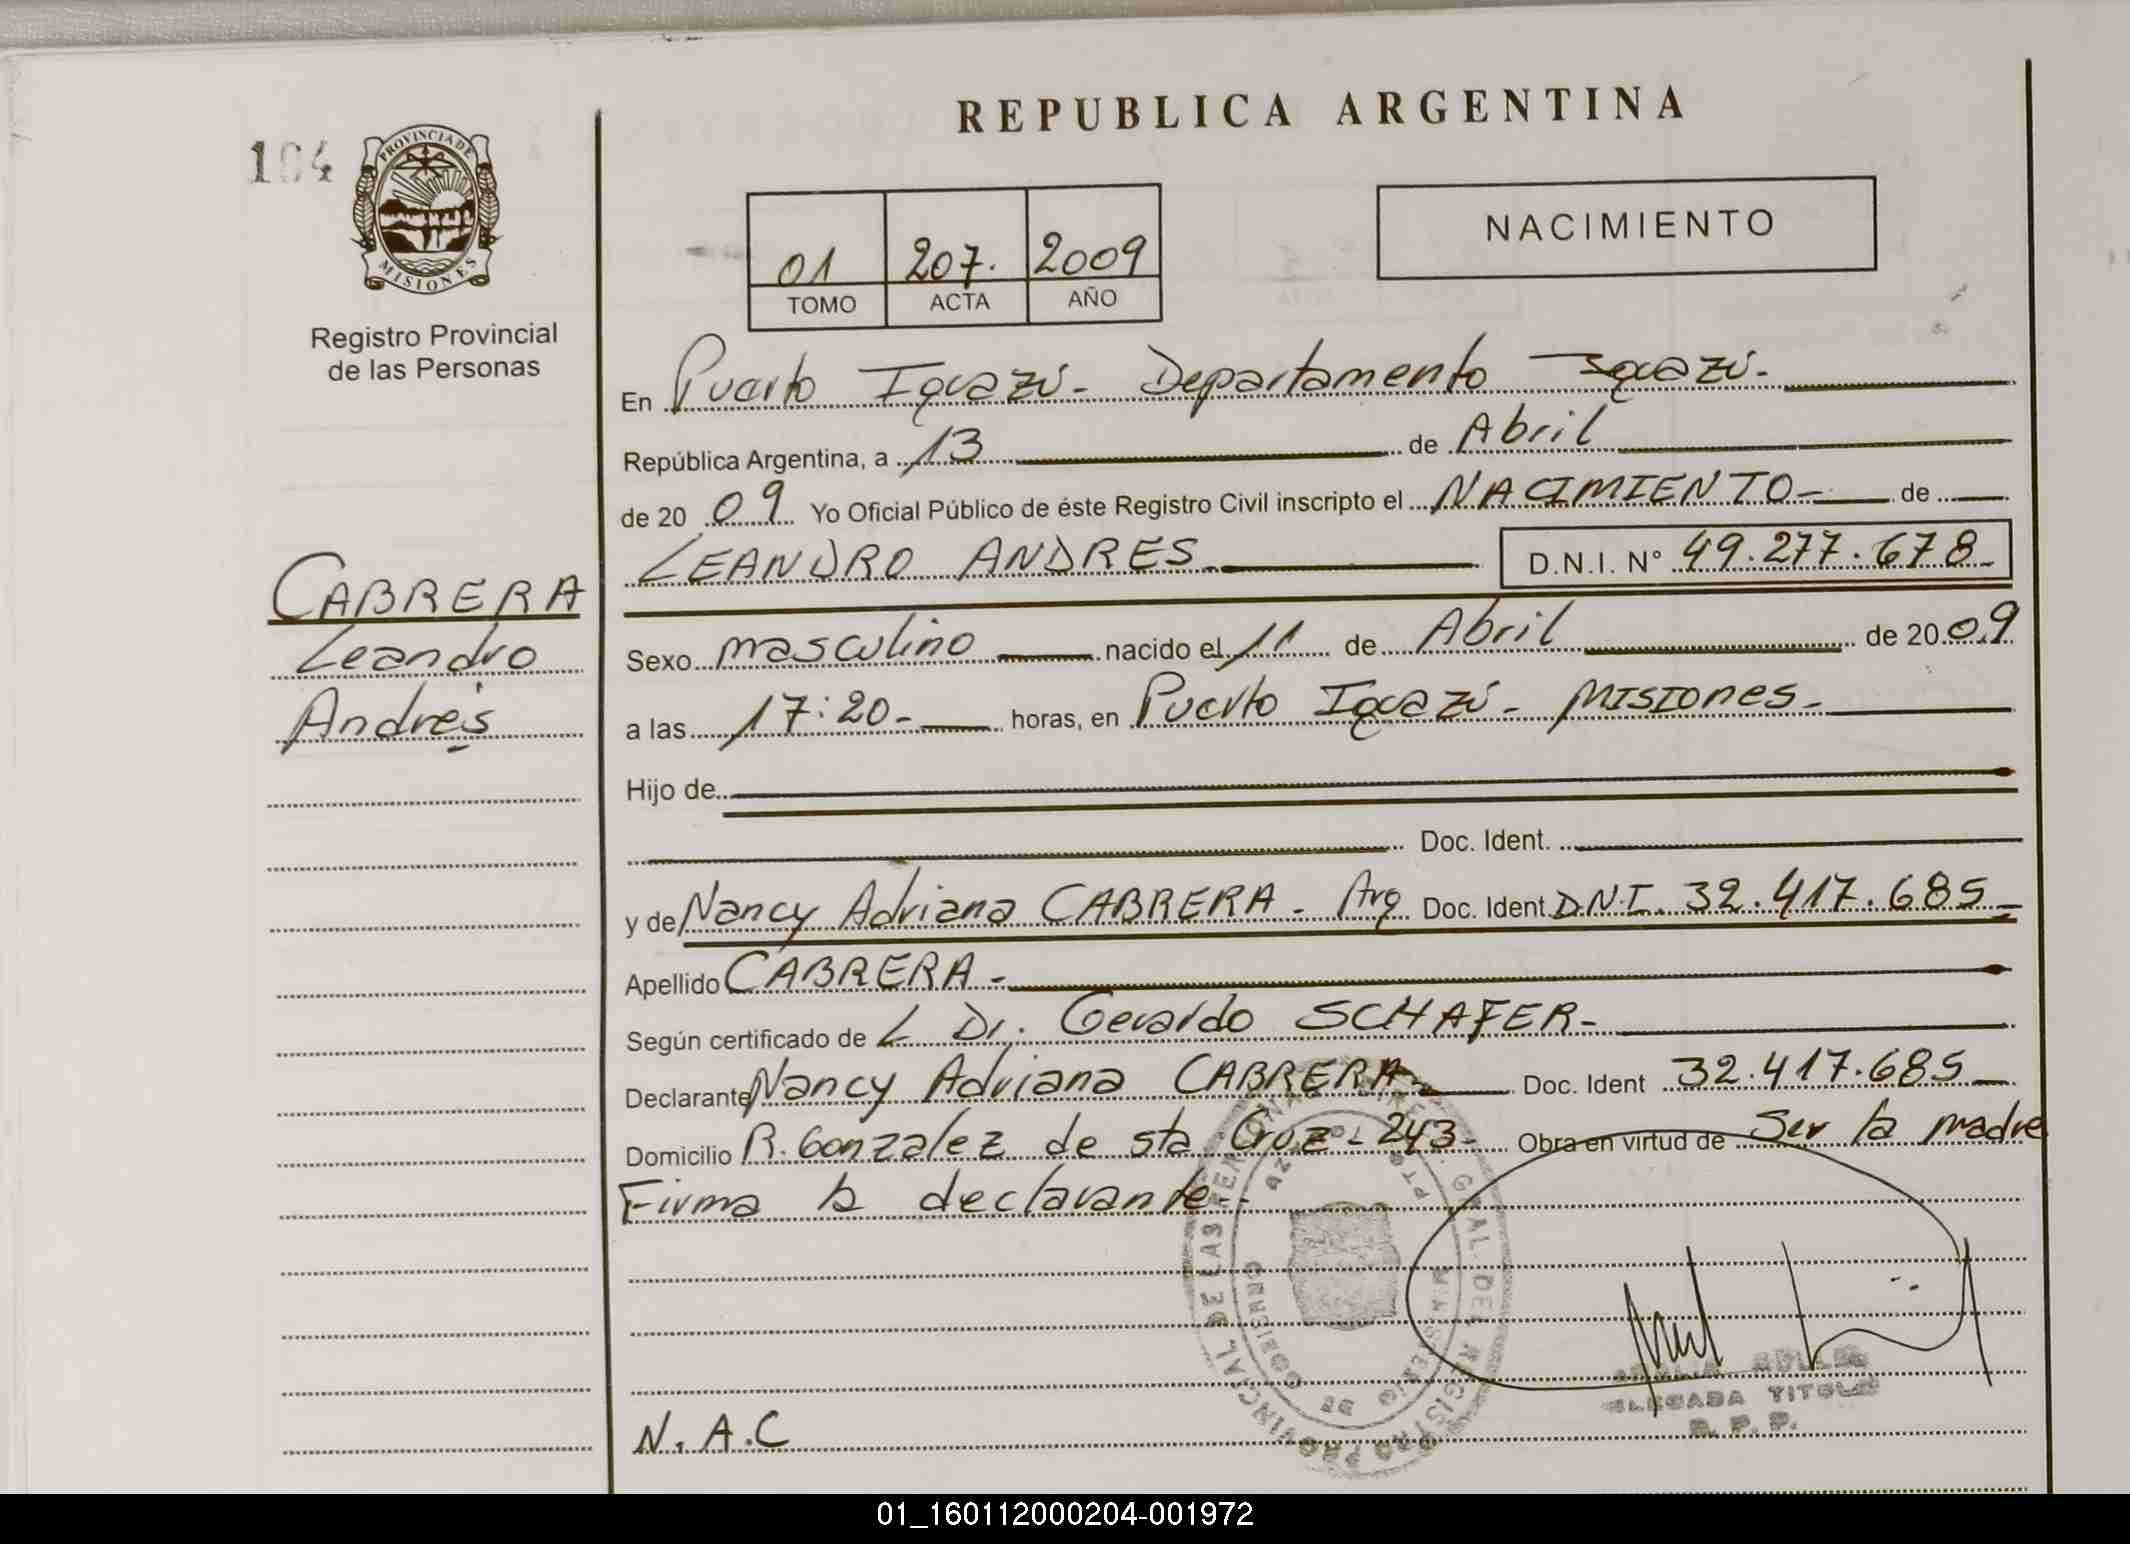 REPUBLICA ARGENTINA
104
PROVINCIA DE
MISIONES
Registro Provincial
de las Personas
NACIMIENTO
01 207. 2009
TOMO ACTA AÑO
En Puerto Iguazú - Departamento Iguazú -
República Argentina, a 13 de Abril
de 20 09 Yo Oficial Público de éste Registro Civil inscripto el NACIMIENTO - de
LEANDRO ANDRES D.N.I. N° 49.277.678 -
CABRERA
Leandro
Andrés
Sexo masculino nacido el 11 de Abril de 20 09
a las 17:20 - horas, en Puerto Iguazú - Misiones -
Hijo de
Doc. Ident.
y de Nancy Adriana CABRERA - Arg Doc. Ident D.N.I. 32.417.685 -
Apellido CABRERA -
Según certificado de L Dr. Gerardo SCHAFER -
Declarante Nancy Adriana CABRERA Doc. Ident 32.417.685
Domicilio R. Gonzalez de sta Cruz - 243 - Obra en virtud de Ser la madre
Firma la declarante -
DELEGADA TITULAR
R. P. P.
N. A. C
01_160112000204-001972